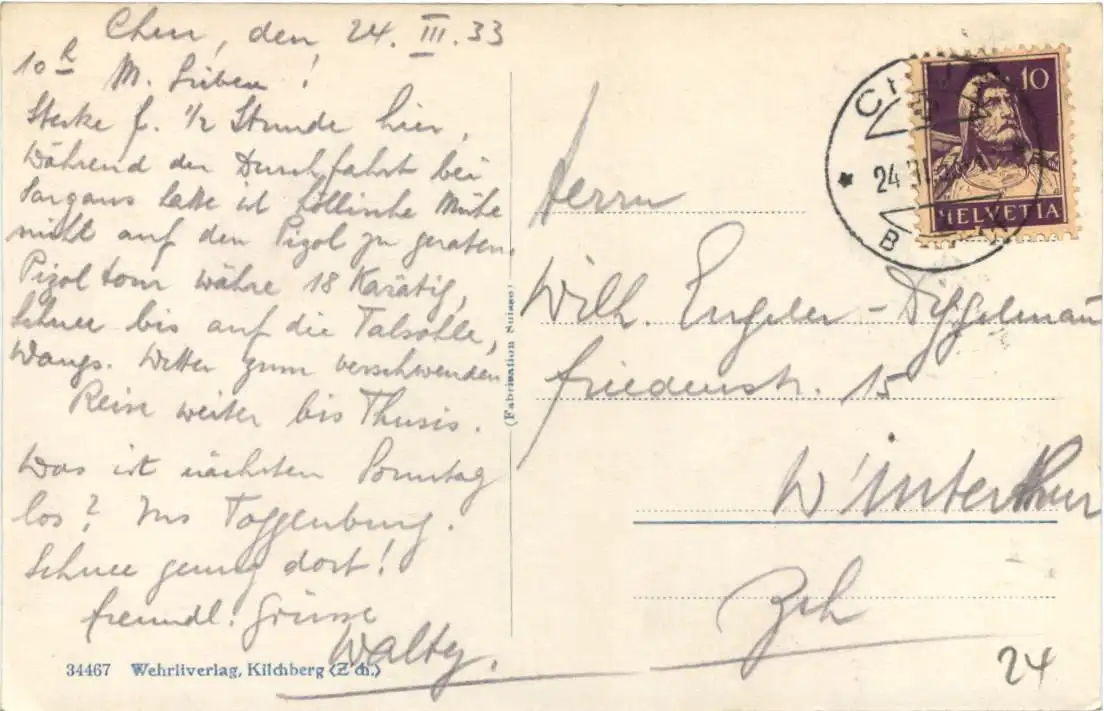 Chur, den 24. III. 33
10 h M. Lieben!
Stecke f. 1/2 Stunde hier,
Während der Durchfahrt bei
Sargans hatte ich höllische Mühe
nicht auf den Pizol zu geraten.
Pizoltour währe 18 Karätig,
Schnee bis auf die Talsohle,
Wangs. Wetter zum verschwenden
Reise weiter bis Thusis.
Was ist nächsten Sonntag
los? Ins Toggenburg.
Schnee genug dort!
freundl. Grüsse
Walty.
34467 Wehrliverlag, Kilchberg (Z'ch.)
(Fabrication Suisse)
10
HELVETIA
24.
Herrn
Wilh. Engeler-Diggelmann
Friedenstr. 15
Winterthur
Zch
24